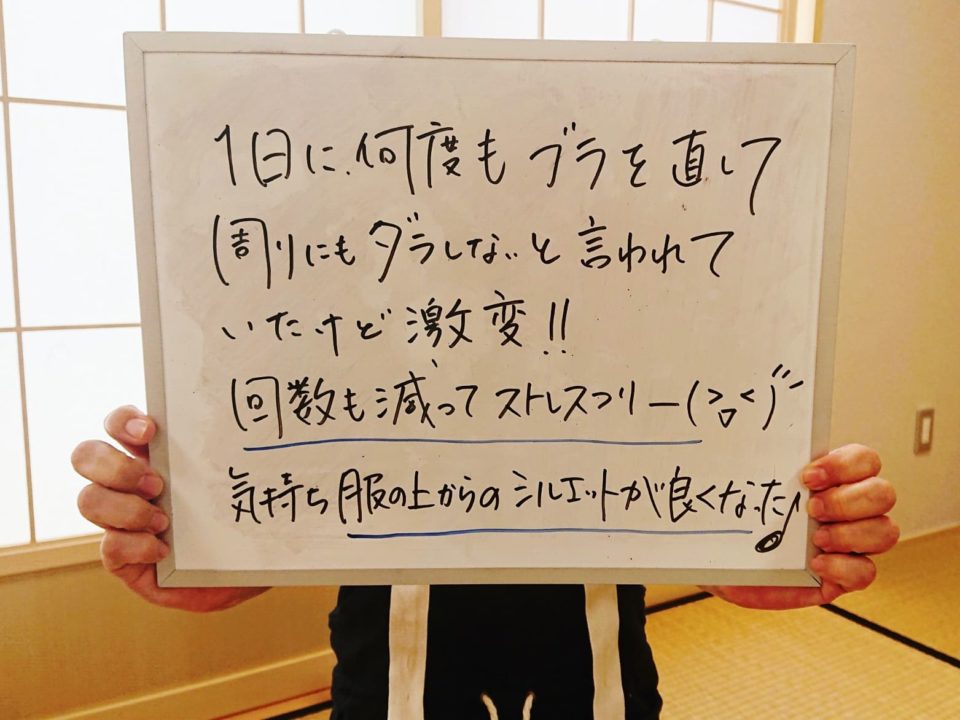 1日に何度もブラを直して
周りにもダラしないと言われて
いたけど激変!!
回数も減ってストレスフリー(>ロ<)
気持ち服の上からのシルエットが良くなった♪